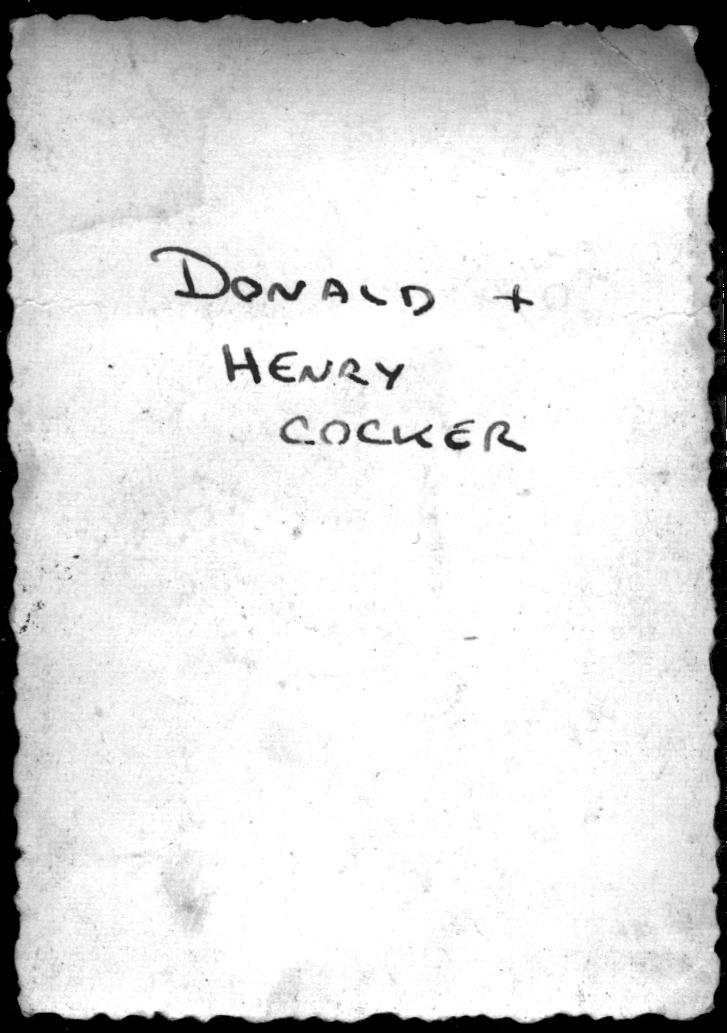 DONALD +
HENRY
COCKER